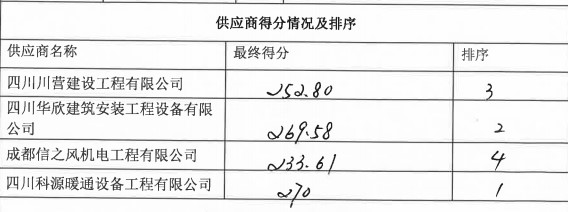 供应商得分情况及排序
供应商名称 最终得分 排序
四川川营建设工程有限公司 252.80 3
四川华欣建筑安装工程设备有限
公司 269.58 2
成都信之风机电工程有限公司 233.61 4
四川科源暖通设备工程有限公司 270 1